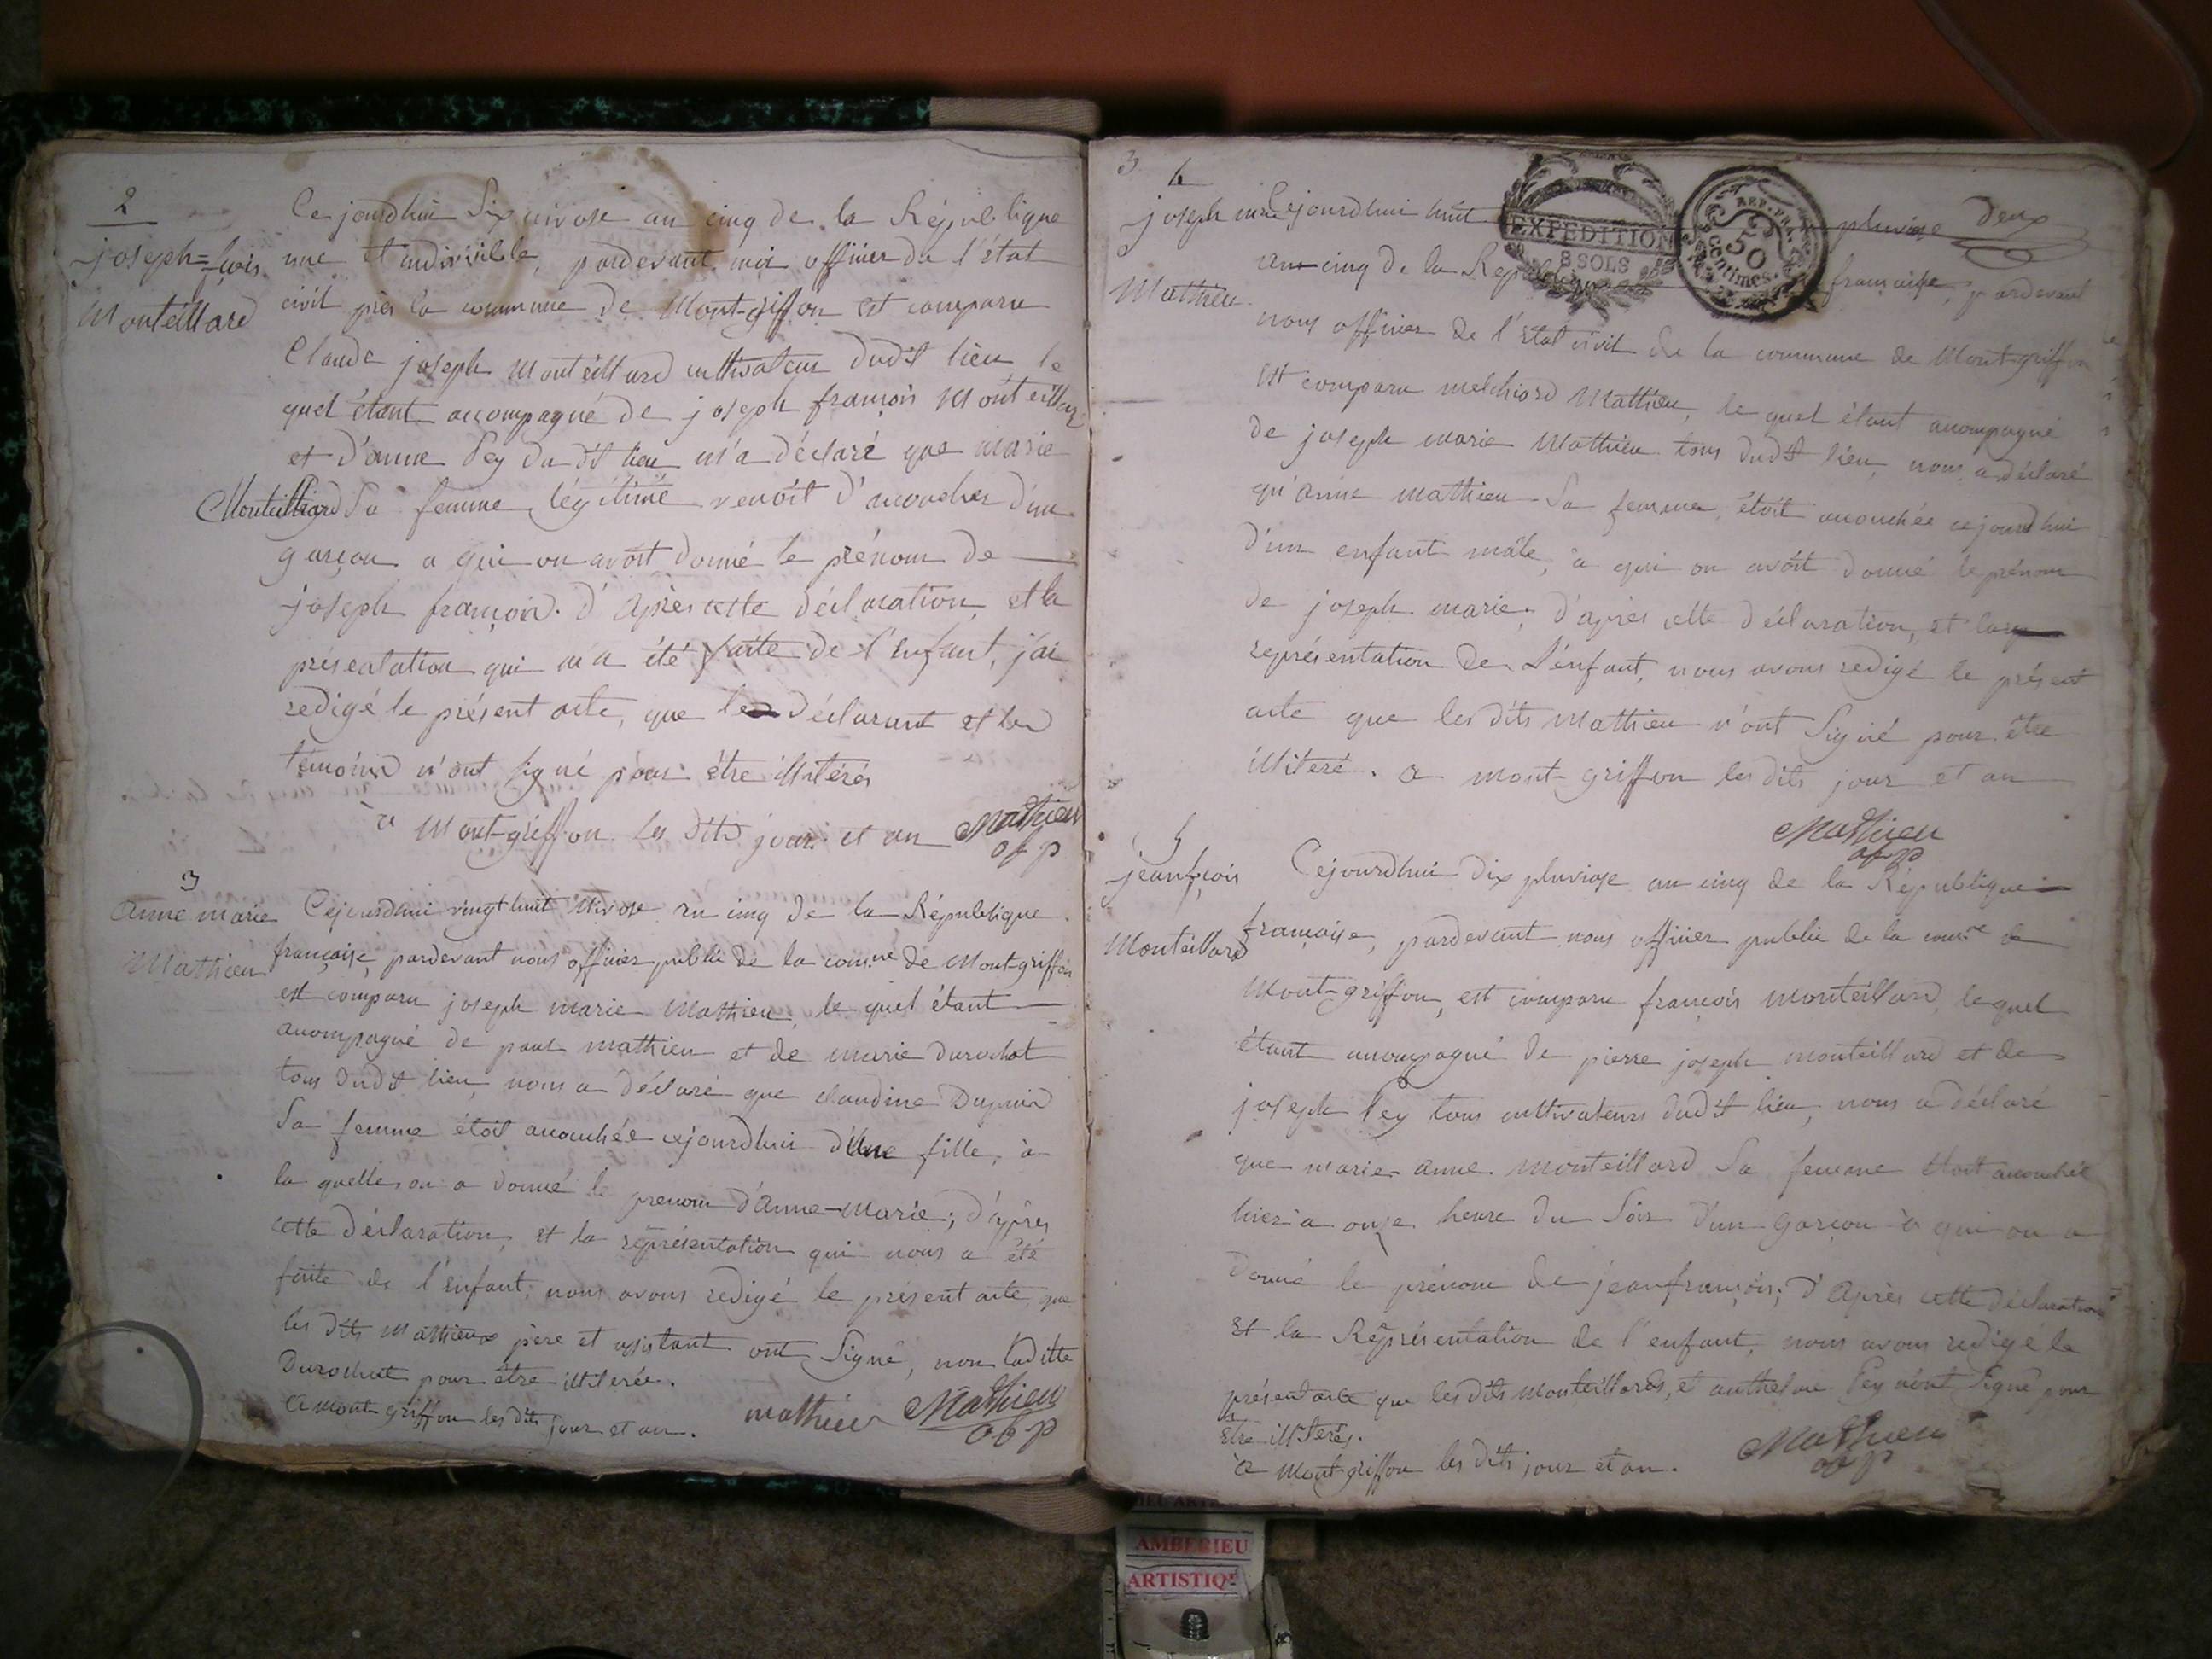 2
joseph = fçois
Monteillard
Ce jourdhui Six nivose an cinq de la République
une et indivisible, pardevant moi officier de l'état
civil près la commune de Mont-griffon est comparu
Claude joseph Monteillard cultivateur dudit lieu, le
quel étant accompagné de joseph françois Monteillard
et d'anne Pey du dit lieu m'a déclaré que marie
Monteilliard Sa femme légitime venoit d'acoucher d'un
garçon a qui on avoit donné le prénom de
joseph françois. d'après cette déclaration, et la
présentation qui m'a été faite de l'enfant, j'ai
redigé le présent acte, que le déclarant et les
témoins n'ont signé pour être illitérés
à Mont-griffon les dits jour et an Mathieu
ofp
3
anne marie
Mathieu
Cejourdhui vingt huit Nivose an cinq de la République
française, pardevant nous officier public de la com.ne de Mont-griffon
est comparu joseph marie Mathieu, le quel étant
acompagné de paul mathieu et de marie Durochat
tous dudit lieu, nous a déclaré que claudine Dupuis
Sa femme étoit acouchée cejourdhui d'une fille, à
la quelle on a donné le prenom d'Anne-Marie; d'après
cette déclaration, et la représentation qui nous a été
faite de l'enfant, nous avons redigé le présent acte, que
les dits Mathieux père et assistant ont Signé, non laditte
Durochat pour être illiterée.
a Mont griffon les dits jour et an. mathieu Mathieu
ofp
3
4
joseph marie
Mathieu
Cejourdhui huit pluviose deux
EXPEDITION
8 SOLS
REP. FRA.
50
centimes.
an cinq de la République française, pardevant
nous officier de l'état civil de la commune de Mont-griffon
est comparu melchiord Mathieu, le quel étant acompagné
de joseph marie Mathieu tous dudit lieu, nous a déclaré
qu'anne mathieu Sa femme, étoit acouchée cejourdhui
d'un enfant mâle, à qui on avoit donné le prénom
de joseph marie; d'après cette déclaration, et la
représentation de L'énfant, nous avons redigé le présent
acte que les dits Mathieu n'ont Signé pour être
illiteré. a mont-griffon les dits jour et an
Mathieu
ofp
5
jean fçois
Monteillard
Cejourdhui dix pluviose an cinq de la République
française, pardevant nous officier public de la com.ne de
Mont-griffon, est comparu françois monteillard, lequel
étant acompagné de pierre joseph monteillard et de
joseph Pey tous cultivateurs dudit lieu, nous a déclaré
que marie anne monteillard Sa femme étoit acouchée
hier à onze heure du Soir d'un garçon à qui on a
donné le prénom de jeanfrançois; d'Après cette déclaration
et la Représentation de l'enfant, nous avons redigé le
présent acte que les dits monteillards, et anthelme Pey n'ont Signé pour
être illiterés.
à Mont-griffon les dits jour et an.
Mathieu
ofp
AMBERIEU
ARTISTIQUE